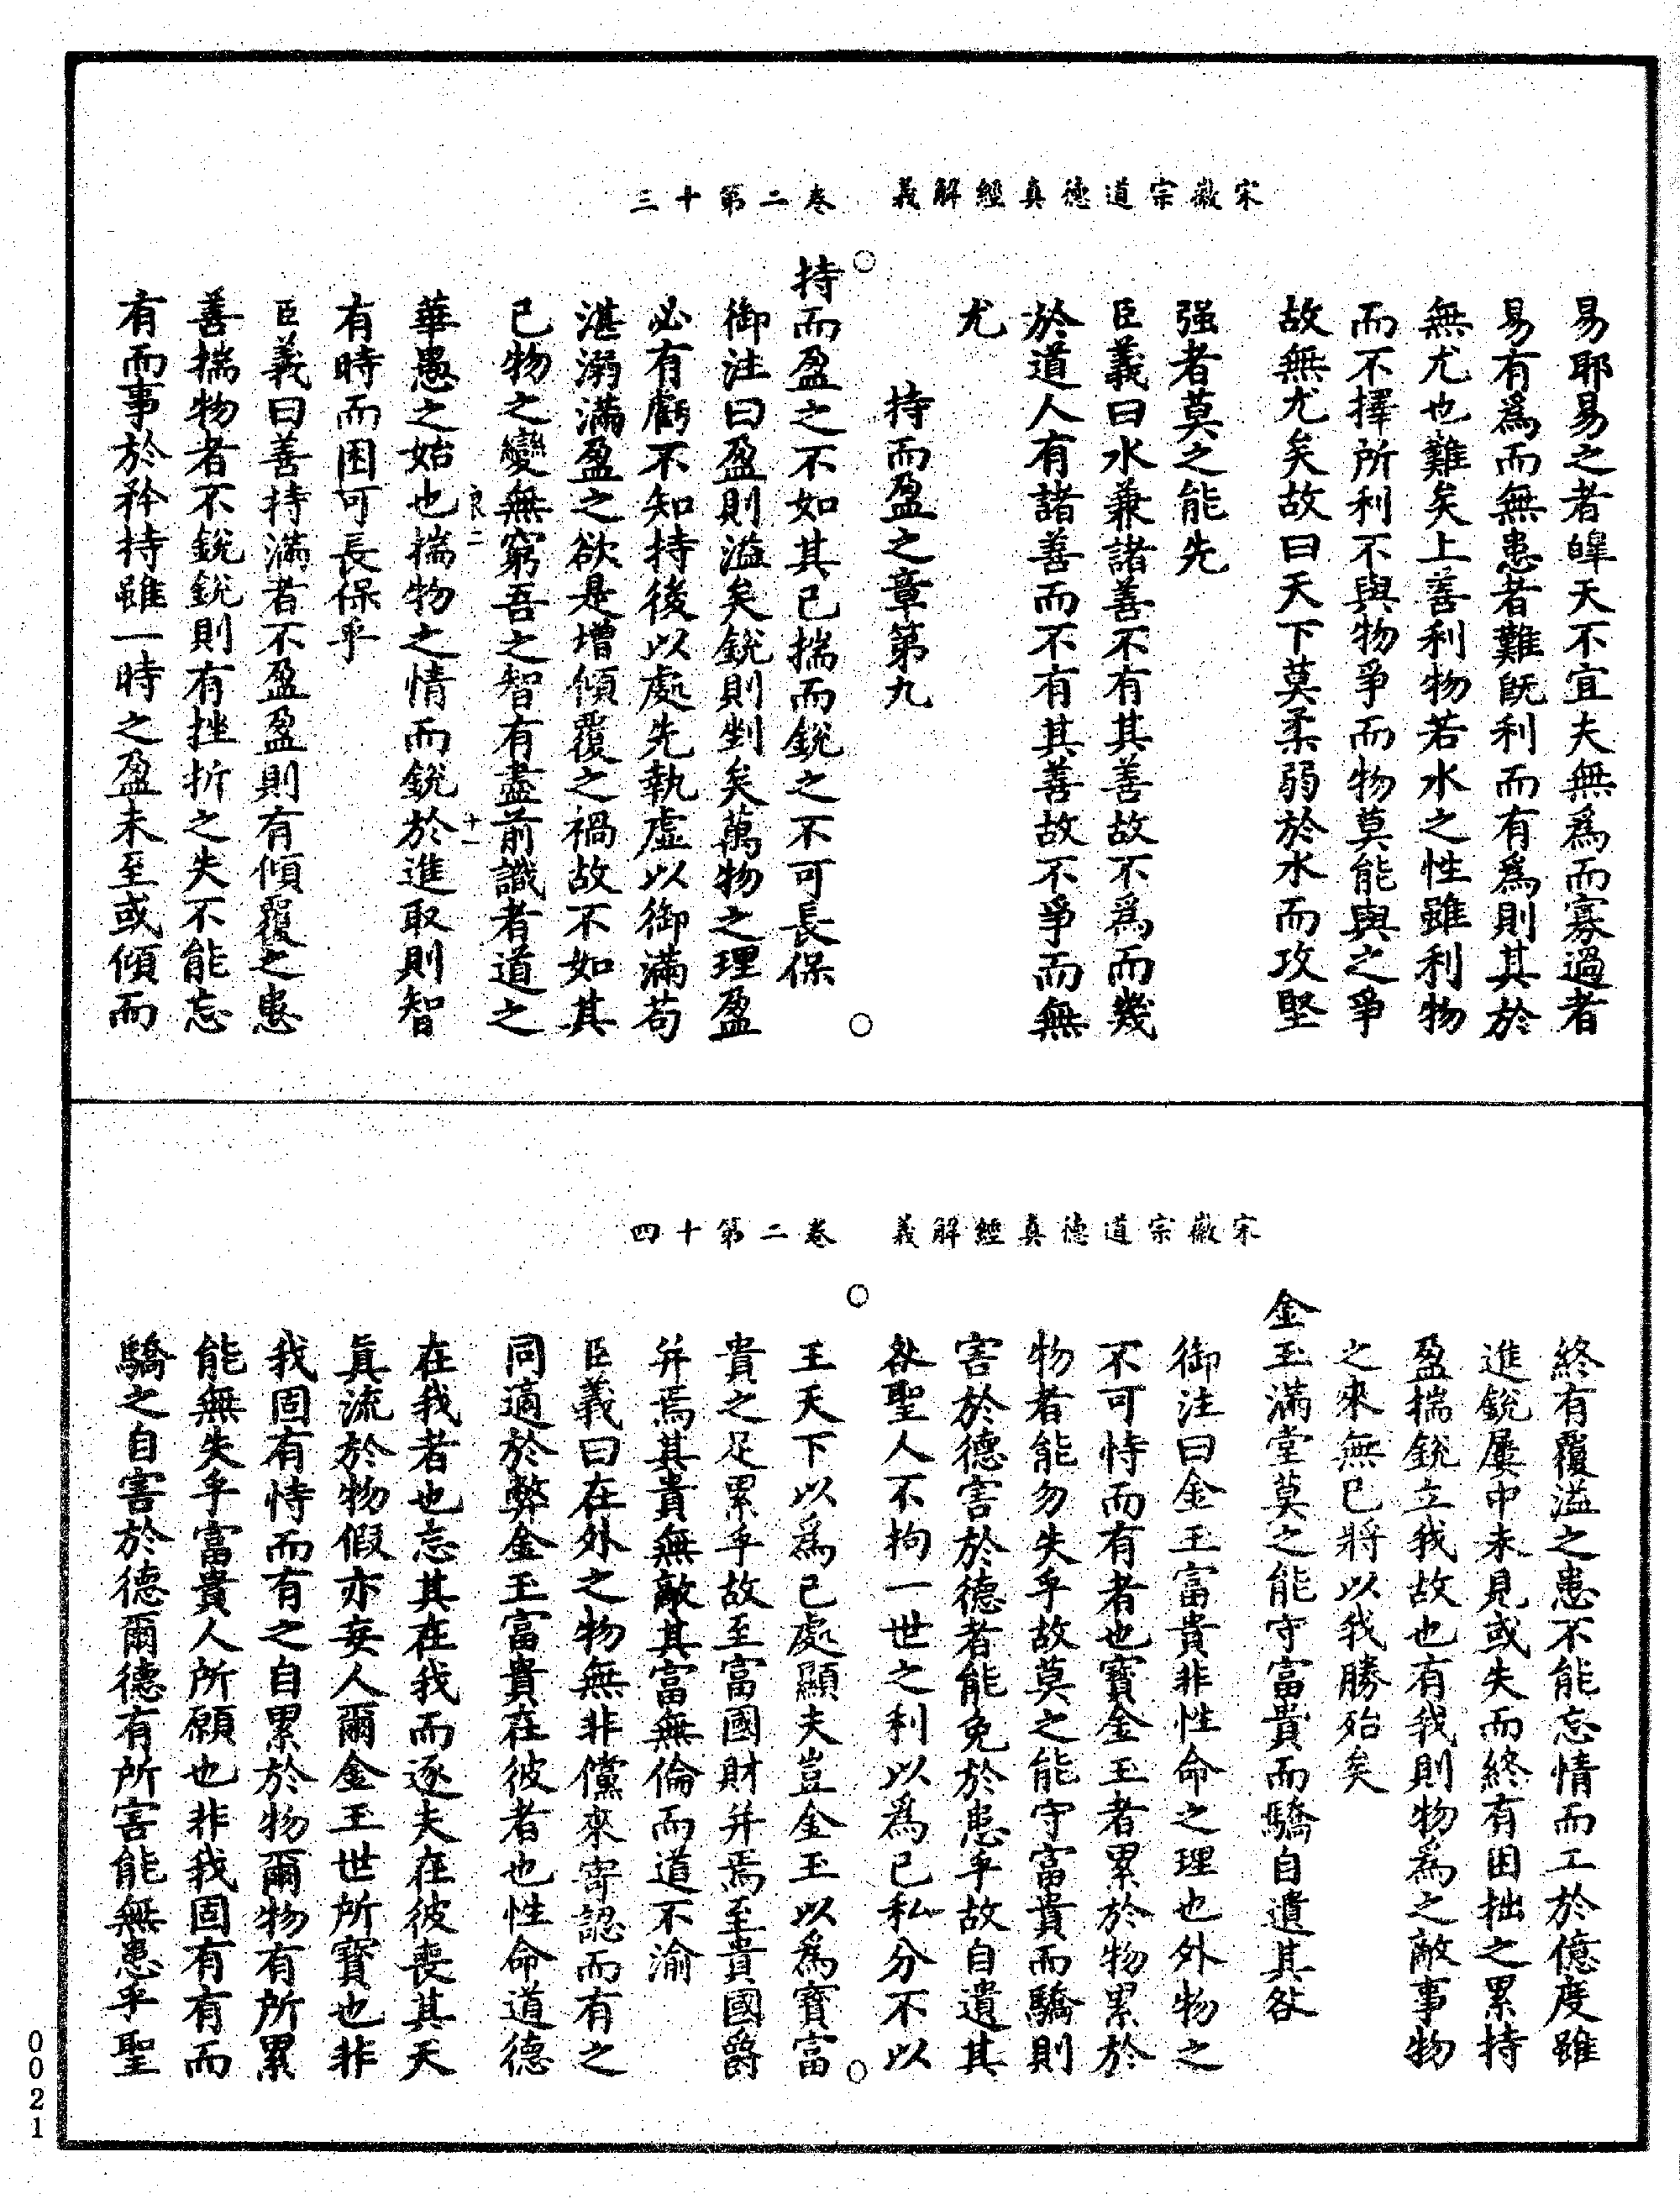 宋徽宗道德真經解義　卷二第十三
易耶易之者皥天不宜夫無爲而寡過者
易有爲而無患者難旣利而有爲則其於
無尤也難矣上善利物若水之性雖利物
而不擇所利不與物爭而物莫能與之爭
故無尤矣故曰天下莫柔弱於水而攻堅
强者莫之能先
臣義曰水兼諸善不有其善故不爲而幾
於道人有諸善而不有其善故不爭而無
尤
持而盈之章第九
持而盈之不如其已揣而銳之不可長保
御注曰盈則溢矣銳則剉矣萬物之理盈
必有虧不知持後以處先執虛以御滿苟
湛溺滿盈之欲是增傾覆之禍故不如其
已物之變無窮吾之智有盡前識者道之
良二　十一
華愚之始也揣物之情而銳於進取則智
有時而困可長保乎
臣義曰善持滿者不盈盈則有傾覆之患
善揣物者不銳銳則有挫折之失不能忘
有而事於矜持雖一時之盈未至或傾而
宋徽宗道德真經解義　卷二第十四
終有覆溢之患不能忘情而工於億度雖
進銳屢中未見或失而終有困拙之累持
盈揣銳立我故也有我則物爲之敵事物
之來無已將以我勝殆矣
金玉滿堂莫之能守富貴而驕自遺其咎
御注曰金玉富貴非性命之理也外物之
不可恃而有者也寶金玉者累於物累於
物者能勿失乎故莫之能守富貴而驕則
害於德害於德者能免於患乎故自遺其
咎聖人不拘一世之利以爲已私分不以
王天下以爲已處顯夫豈金玉以爲寶富
貴之足累乎故至富國財并焉至貴國爵
并焉其貴無敵其富無倫而道不渝
臣義曰在外之物無非儻來寄認而有之
同適於弊金玉富貴在彼者也性命道德
在我者也忘其在我而逐夫在彼喪其天
眞流於物假亦妄人爾金玉世所寶也非
我固有恃而有之自累於物爾物有所累
能無失乎富貴人所願也非我固有有而
驕之自害於德爾德有所害能無患乎聖
0021